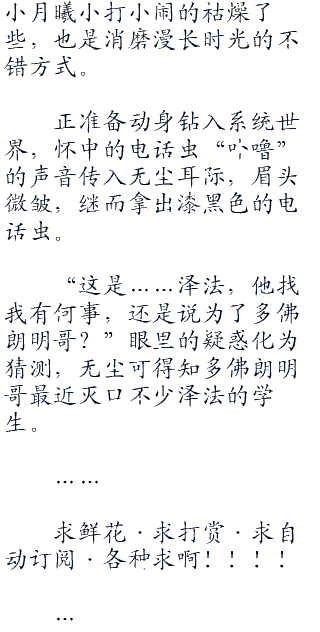 小月曦小打小闹的祜燥了
些，也是消磨漫长时光的不
错方式。
正准备动身钻入系统世
界，怀中的电话虫“吣噜”
的声音传入无尘耳际，眉头
微皱，继而拿出漆黑色的电
话虫。
“这是……泽法，他找
我有何事，还是说为了多佛
朗明哥？”眼里的疑惑化为
猜测，无尘可得知多佛朗明
哥最近灭口不少泽法的学
生。
……
求鲜花·求打赏·求自
动订阅·各种求啊！！！！
…